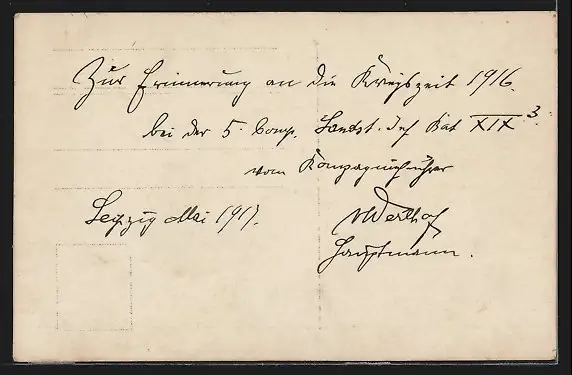 Zur Erinnerung an die Kriegszeit 1916.
bei der 5. Comp. Landst. Inf. Bat XIX 3.
vom Kompagnieführer
Leipzig Mai 1917.
Hauptmann.